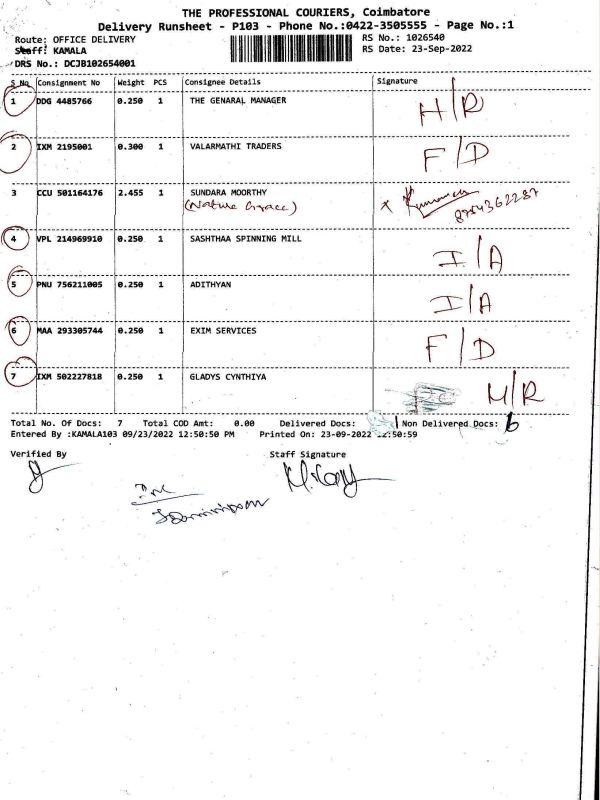 THE PROFESSIONAL COURIERS, Coimbatore
Delivery Runsheet - P103 - Phone No.:0422-3505555 - Page No.:1
Route: OFFICE DELIVERY RS No.: 1026540
Staff: KAMALA RS Date: 23-Sep-2022
DRS No.: DCJB102654001
S No Consignment No Weight PCS Consignee Details Signature
1 DDG 4485766 0.250 1 THE GENARAL MANAGER H/R
2 IXM 2195001 0.300 1 VALARMATHI TRADERS F/D
3 CCU 501164176 2.455 1 SUNDARA MOORTHY
(Nature Grace) 8754362287
4 VPL 214969910 0.250 1 SASHTHAA SPINNING MILL I/A
5 PNU 756211005 0.250 1 ADITHYAN I/A
6 MAA 293305744 0.250 1 EXIM SERVICES F/D
7 IXM 502227818 0.250 1 GLADYS CYNTHIYA M/R
Total No. Of Docs: 7 Total COD Amt: 0.00 Delivered Docs: 1 Non Delivered Docs: 6
Entered By :KAMALA103 09/23/2022 12:50:50 PM Printed On: 23-09-2022 12:50:59
Verified By Staff Signature